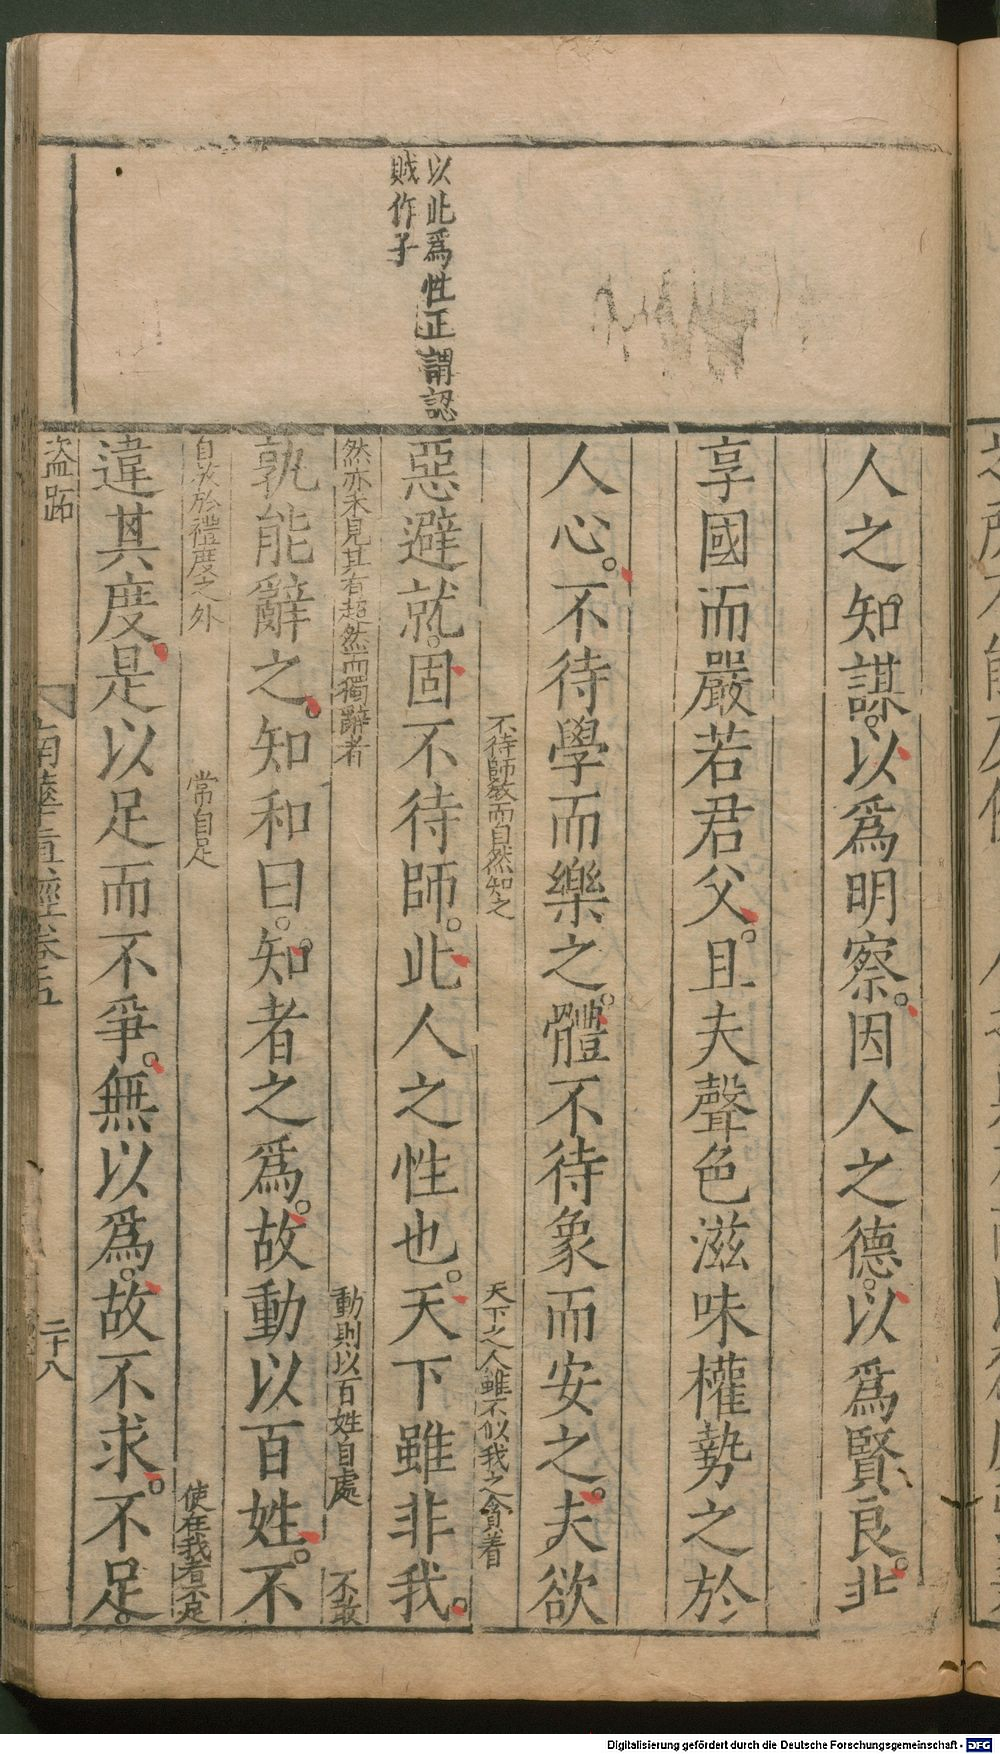 以此爲性正謂認
賊作子
人之知謀以爲明察因人之德以爲賢良非
享國而嚴若君父且夫聲色滋味權勢之於
人心不待學而樂之體不待象而安之夫欲
不待師教而自然知之 天下之人雖不似我之貪着
惡避就固不待師此人之性也天下雖非我
然亦未見其有超然而獨辭者 動則以百姓自處 不敢
孰能辭之知和曰知者之爲故動以百姓不
自放於禮度之外 常自足 使在我者不足
違其度是以足而不爭無以爲故不求不足
盗跖 南華真經卷五 二十八
Digitalisierung gefördert durch die Deutsche Forschungsgemeinschaft - DFG